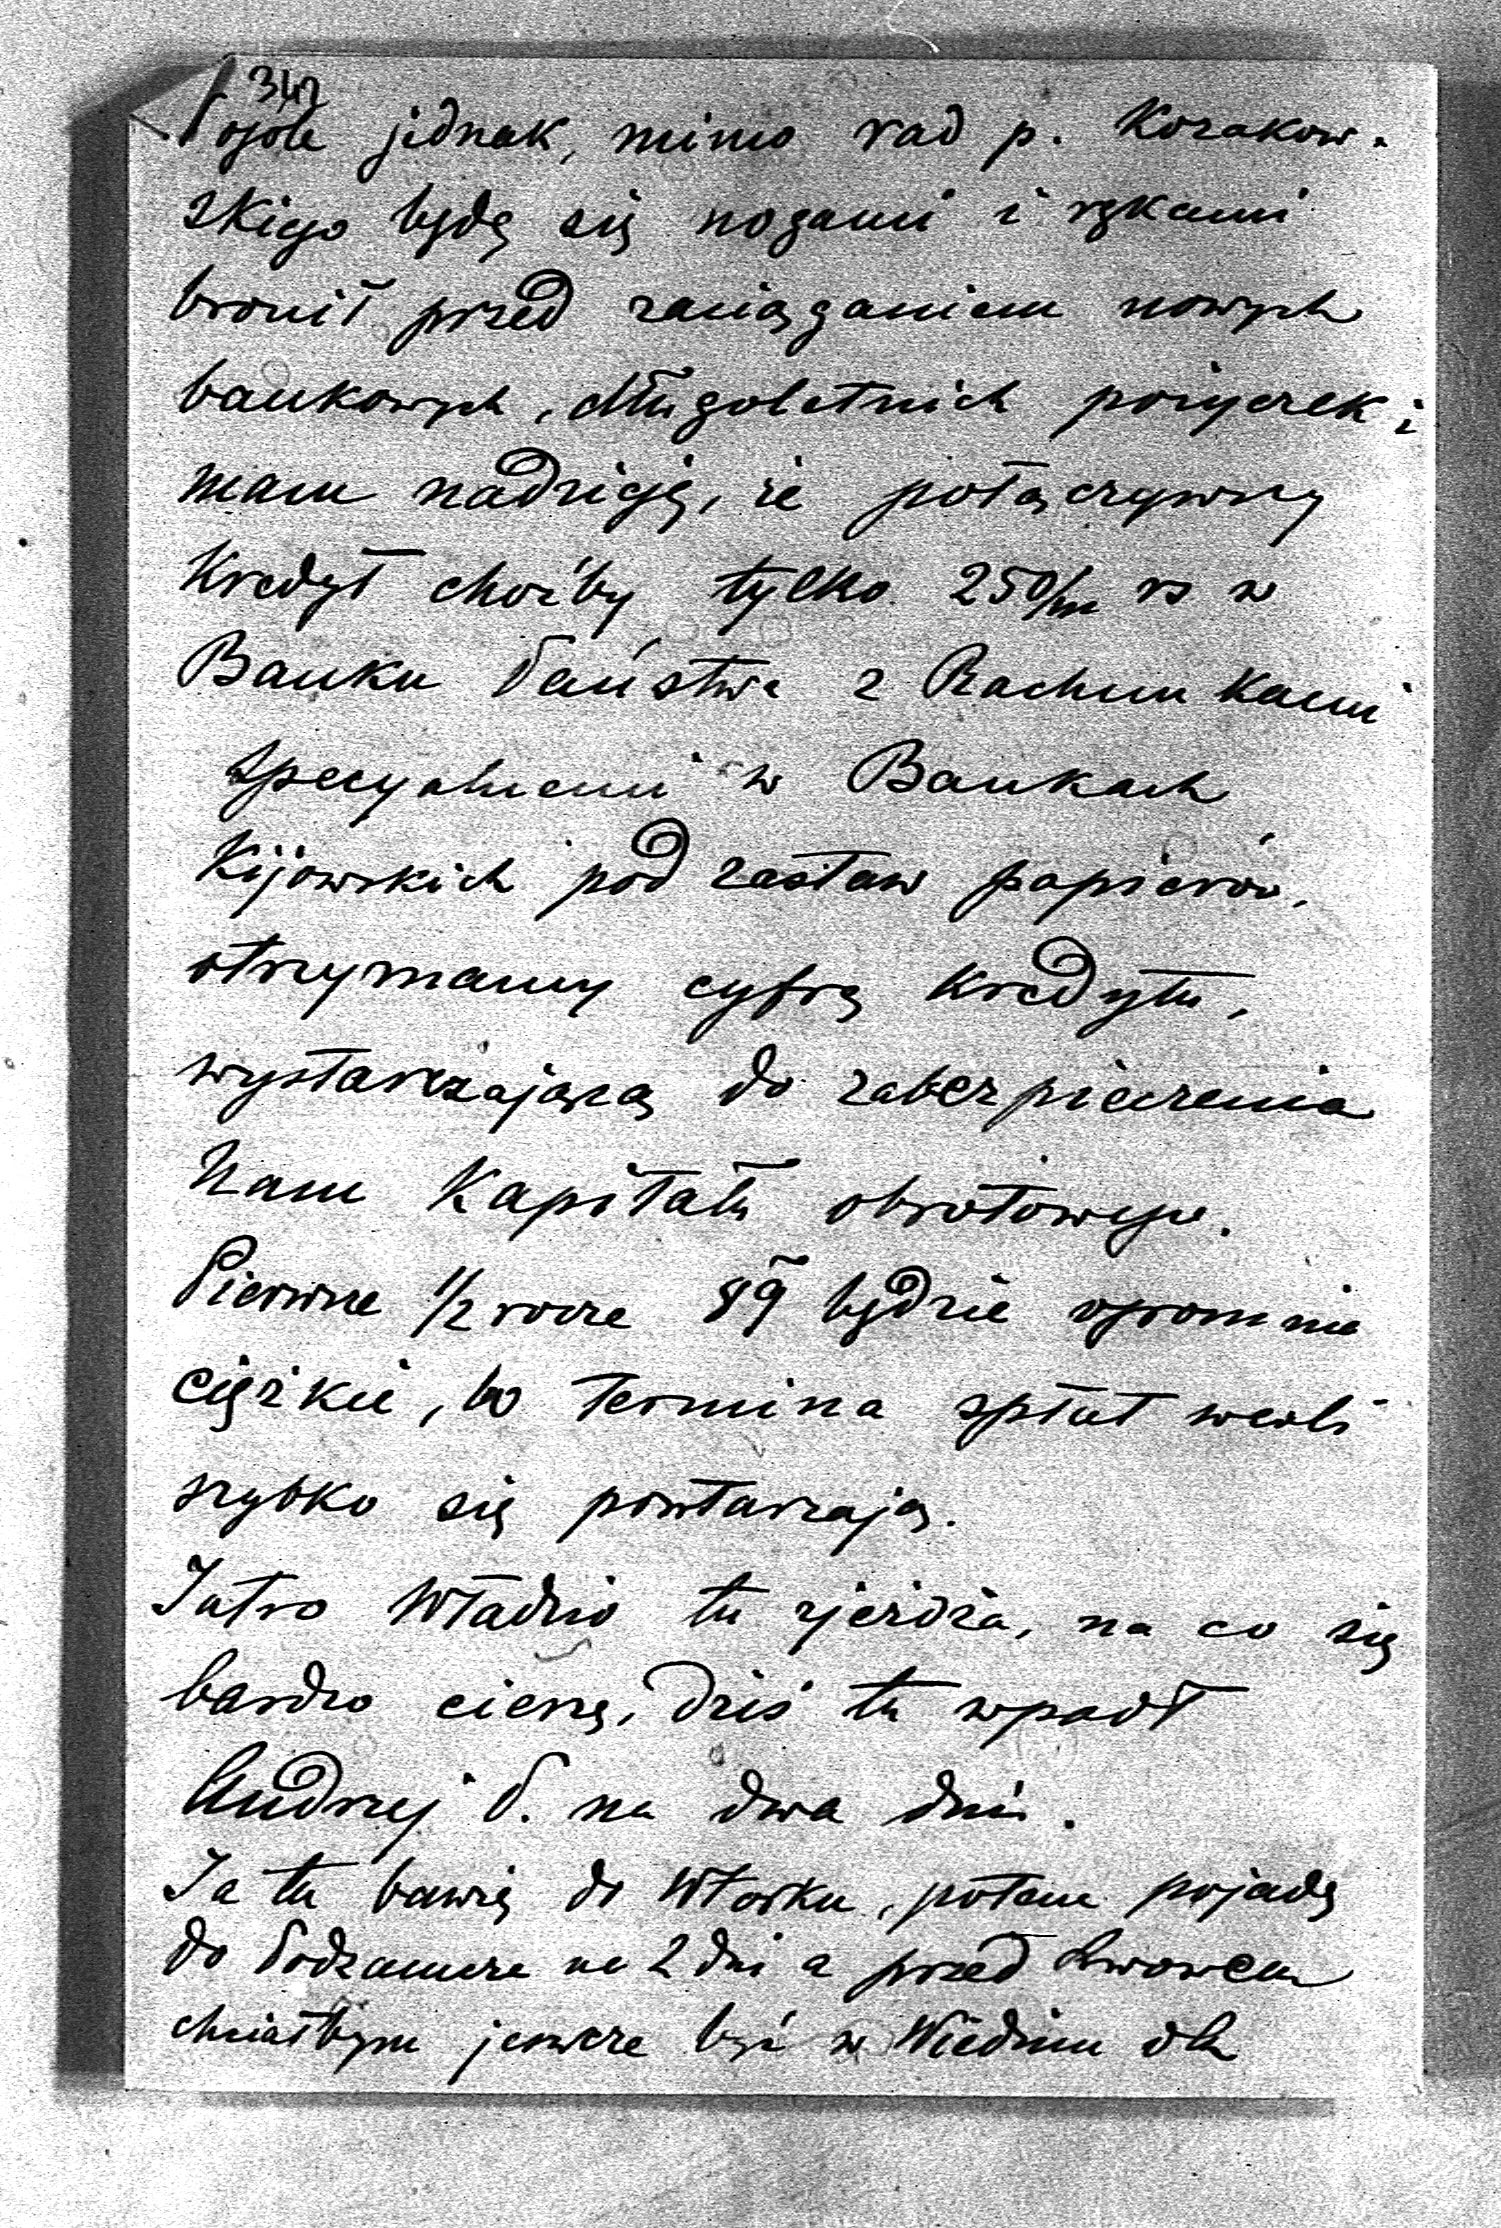 342
Pojole jednak, mimo rad p. Kozakow-
skiego będę się nogami i rękami
bronił przed zaciąganiem nowych
bankowych, długoletnich pożyczek i
mam nadzieję, że połączywszy
Kredyt choćby tylko 250/m rs w
Banku Państwa z Rachunkami
specyalnemi w Bankach
Kijowskich pod zastaw papierów,
otrzymamy cyfrę kredytu,
wystarczającą do zabezpieczenia
Nam Kapitału obrotowego.
Pierwsze 1/2 rocze 89 będzie ogromnie
ciężkie, bo termina spłat weksli
szybko się powtarzają.
Jutro Władzio tu zjeżdża, na co się
bardzo cieszę, dziś tu wpadł
Andrzej P. na dwa dni.
Ja tu bawię do Wtorku, potem pojadę
do Podzamcza na 2 dni a przed Lwowem
chciałbym jeszcze być w Wiedniu dla